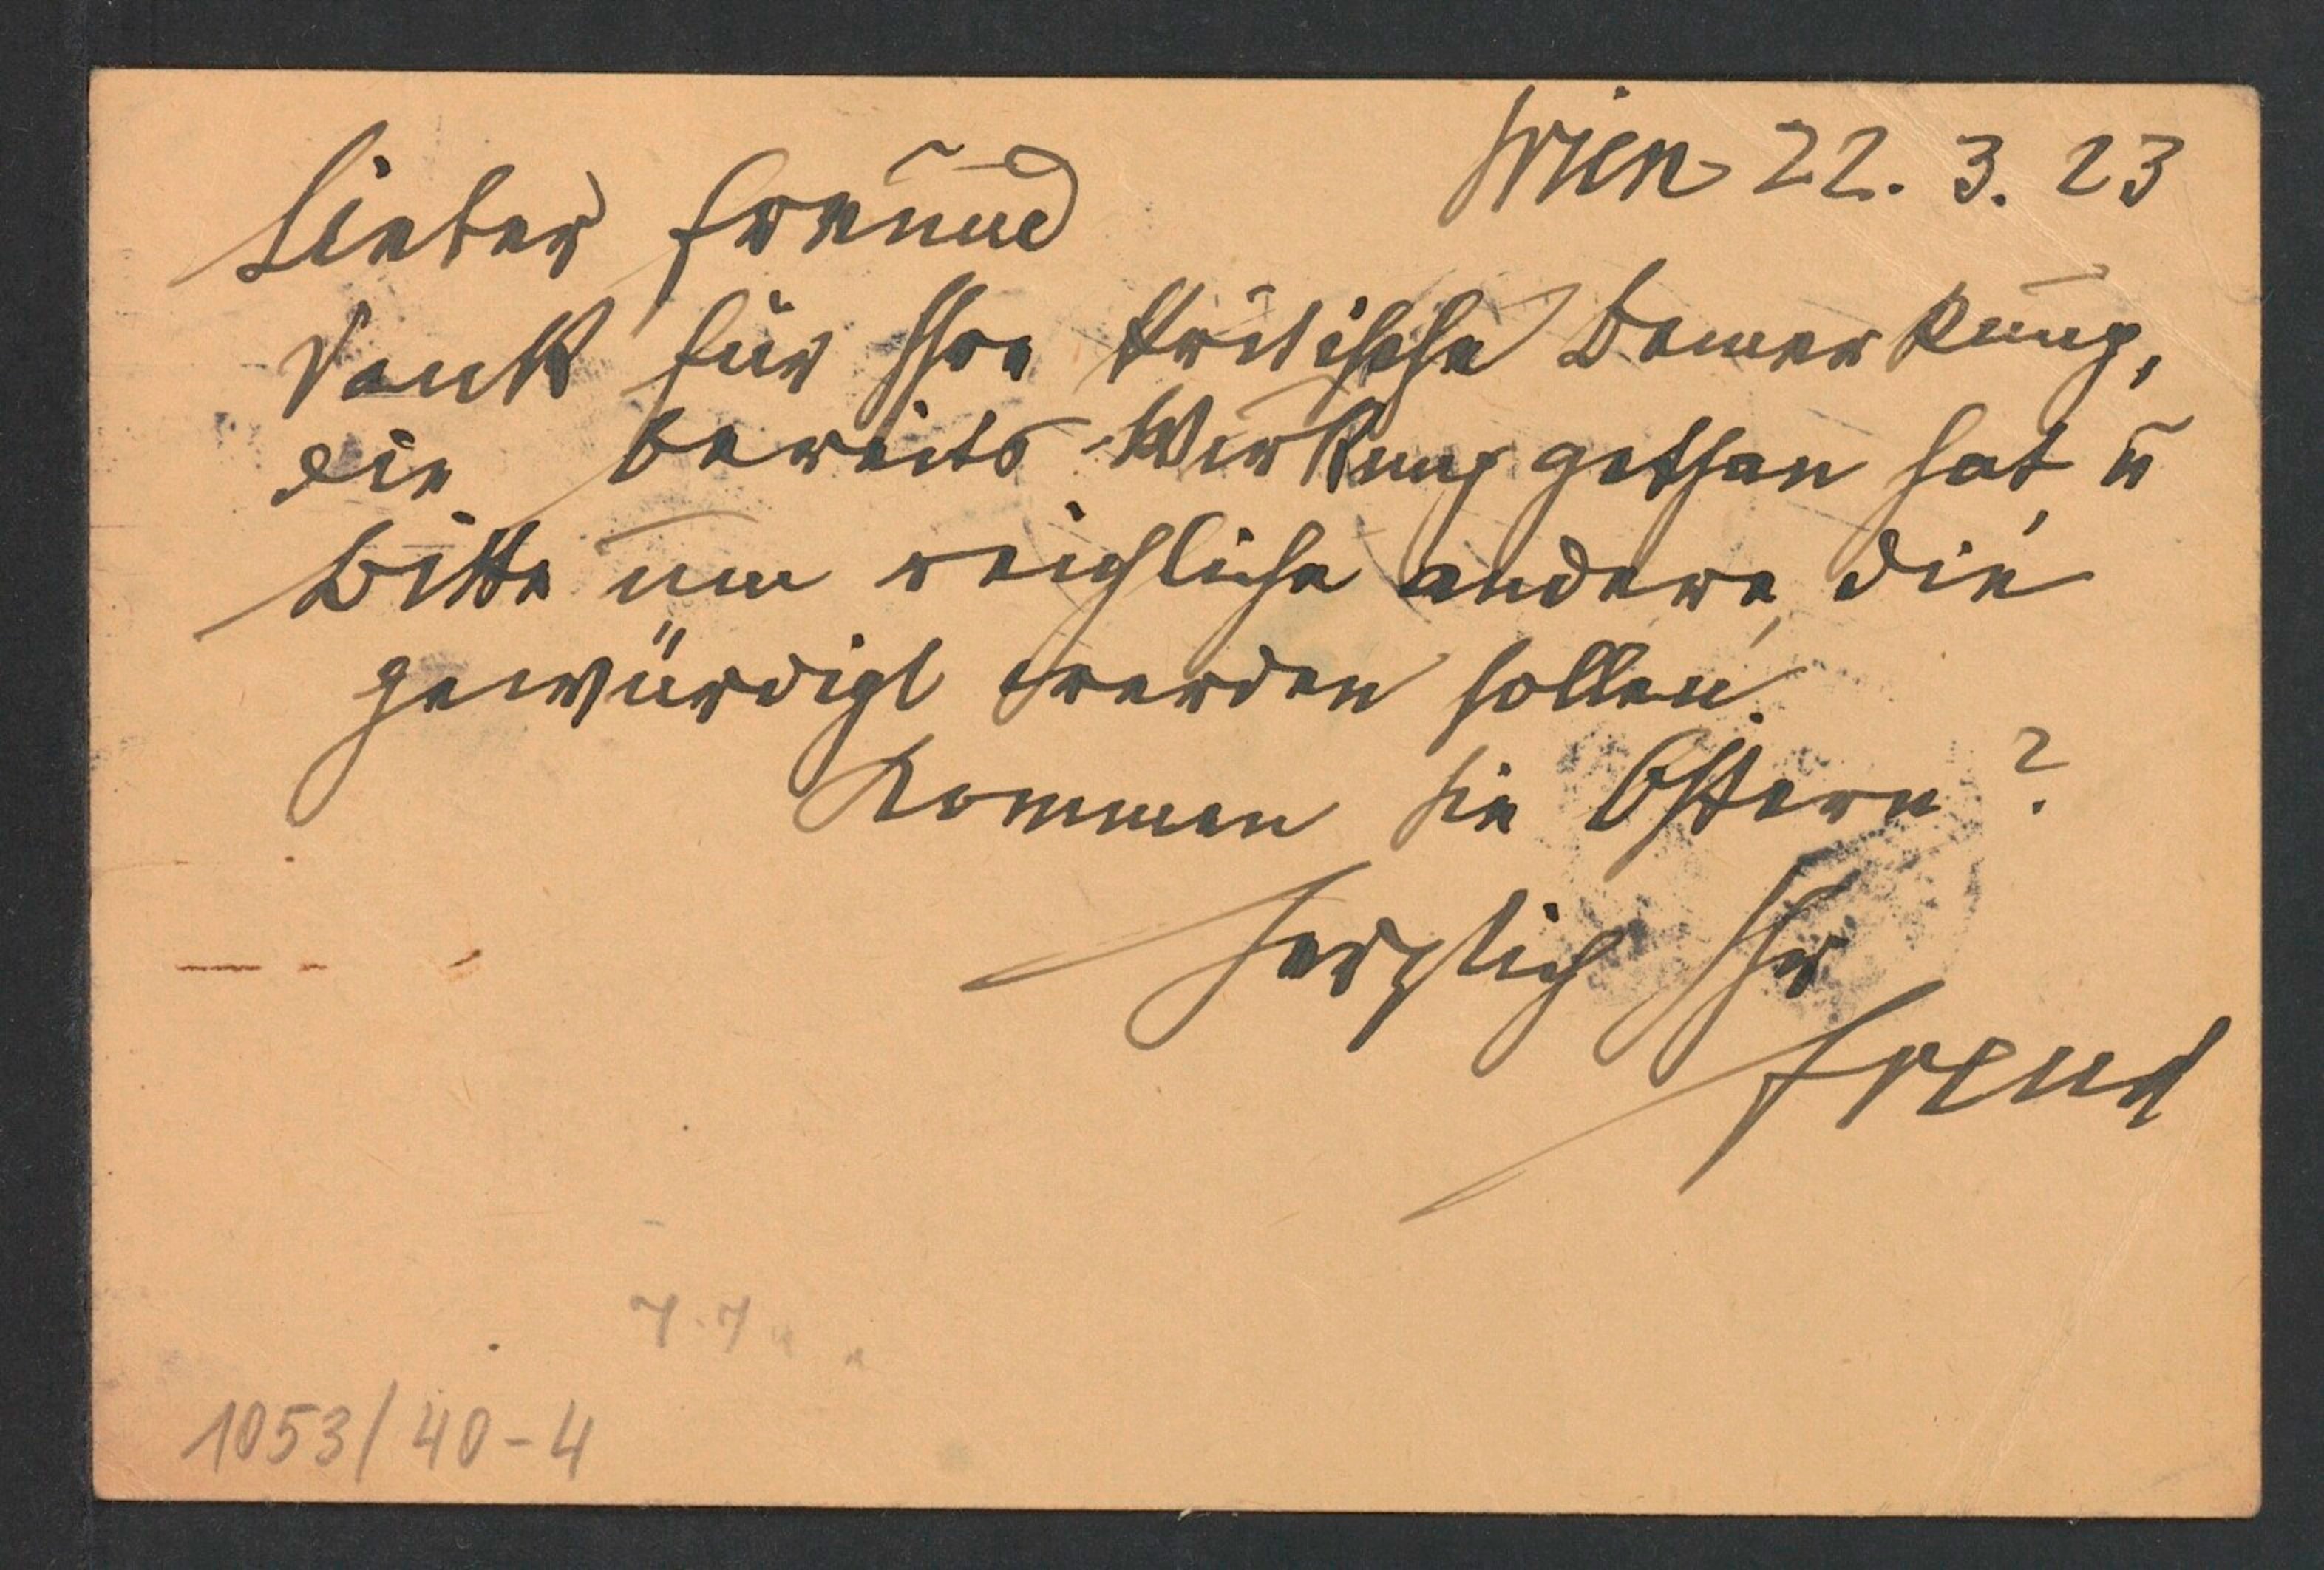 Wien 22. 3. 23
Lieber Freund
Dank für Ihre kritische Bemerkung,
die bereits Wirkung gethan hat, u
bitte um reichliche andere, die
gewürdigt werden sollen.
Kommen Sie Ostern?
Herzlich Ihr
Freud
1053/40-4